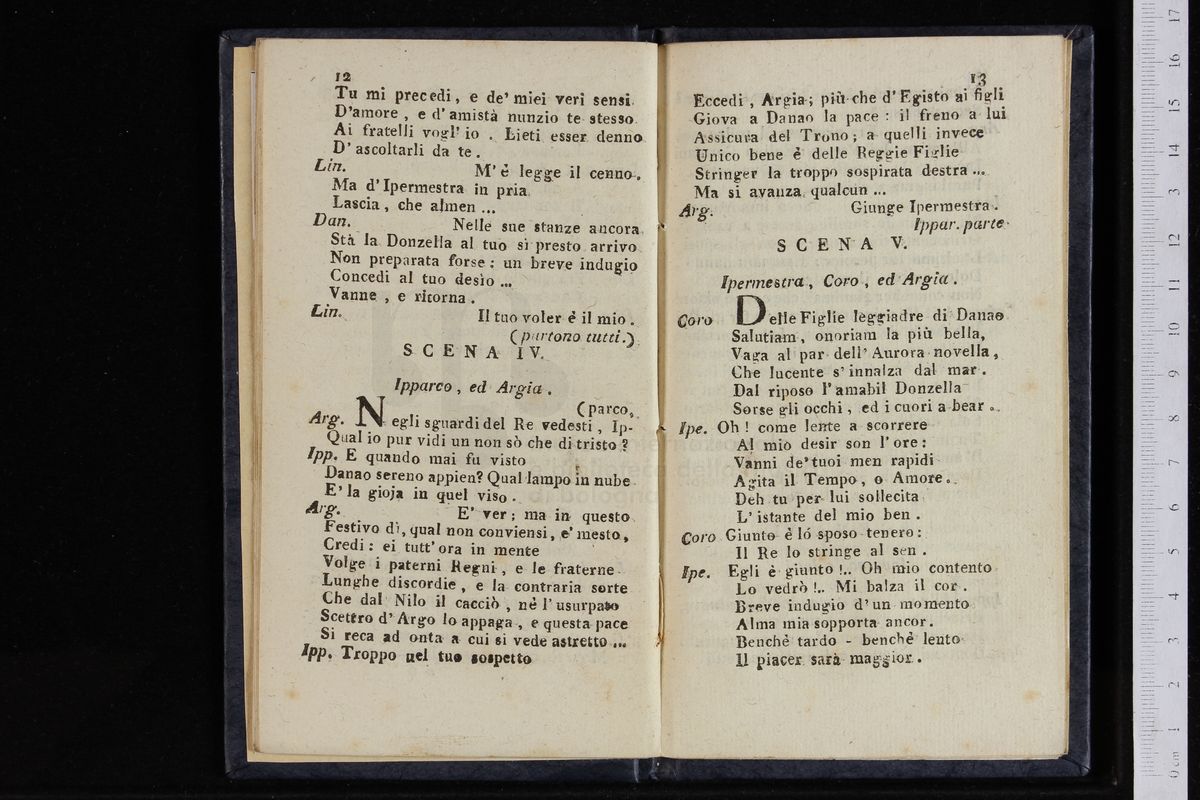 12
Tu mi precedi, e de' miei veri sensi
D'amore, e d'amistà nunzio te stesso
Ai fratelli vogl' io. Lieti esser denno
D' ascoltarli da te.
Lin. M' è legge il cenno.
Ma d' Ipermestra in pria
Lascia, che almen ...
Dan. Nelle sue stanze ancora
Stà la Donzella al tuo sì presto arrivo
Non preparata forse: un breve indugio
Concedi al tuo desìo ...
Vanne, e ritorna.
Lin. Il tuo voler è il mio.
(partono tutti.)
SCENA IV.
Ipparco, ed Argia.
(parco,
Arg. Negli sguardi del Re vedesti, Ip-
Qual io pur vidi un non sò che di tristo?
Ipp. E quando mai fu visto
Danao sereno appien? Qual lampo in nube
E' la gioja in quel viso.
Arg. E' ver; ma in questo
Festivo dì, qual non conviensi, e' mesto,
Credi: ei tutt' ora in mente
Volge i paterni Regni, e le fraterne
Lunghe discordie, e la contraria sorte
Che dal Nilo il cacciò, nè l' usurpato
Scettro d' Argo lo appaga, e questa pace
Si reca ad onta a cui si vede astretto ...
Ipp. Troppo nel tuo sospetto
13
Eccedi, Argia; più che d' Egisto ai figli
Giova a Danao la pace: il freno a lui
Assicura del Trono; a quelli invece
Unico bene è delle Reggie Figlie
Stringer la troppo sospirata destra ...
Ma si avanza qualcun ...
Arg. Giunge Ipermestra.
Ippar. parte
SCENA V.
Ipermestra, Coro, ed Argia.
Coro Delle Figlie leggiadre di Danao
Salutiam, onoriam la più bella,
Vaga al par dell' Aurora novella,
Che lucente s' innalza dal mar.
Dal riposo l' amabil Donzella
Sorse gli occhi, ed i cuori a bear.
Ipe. Oh! come lente a scorrere
Al mio desir son l' ore:
Vanni de' tuoi men rapidi
Agita il Tempo, o Amore.
Deh tu per lui sollecita
L' istante del mio ben.
Coro Giunto è lo sposo tenero:
Il Re lo stringe al sen.
Ipe. Egli è giunto!.. Oh mio contento
Lo vedrò!.. Mi balza il cor.
Breve indugio d' un momento
Alma mia sopporta ancor.
Benchè tardo - benchè lento
Il piacer sarà maggior.
0 cm 1 2 3 4 5 6 7 8 9 10 11 12 13 14 15 16 17